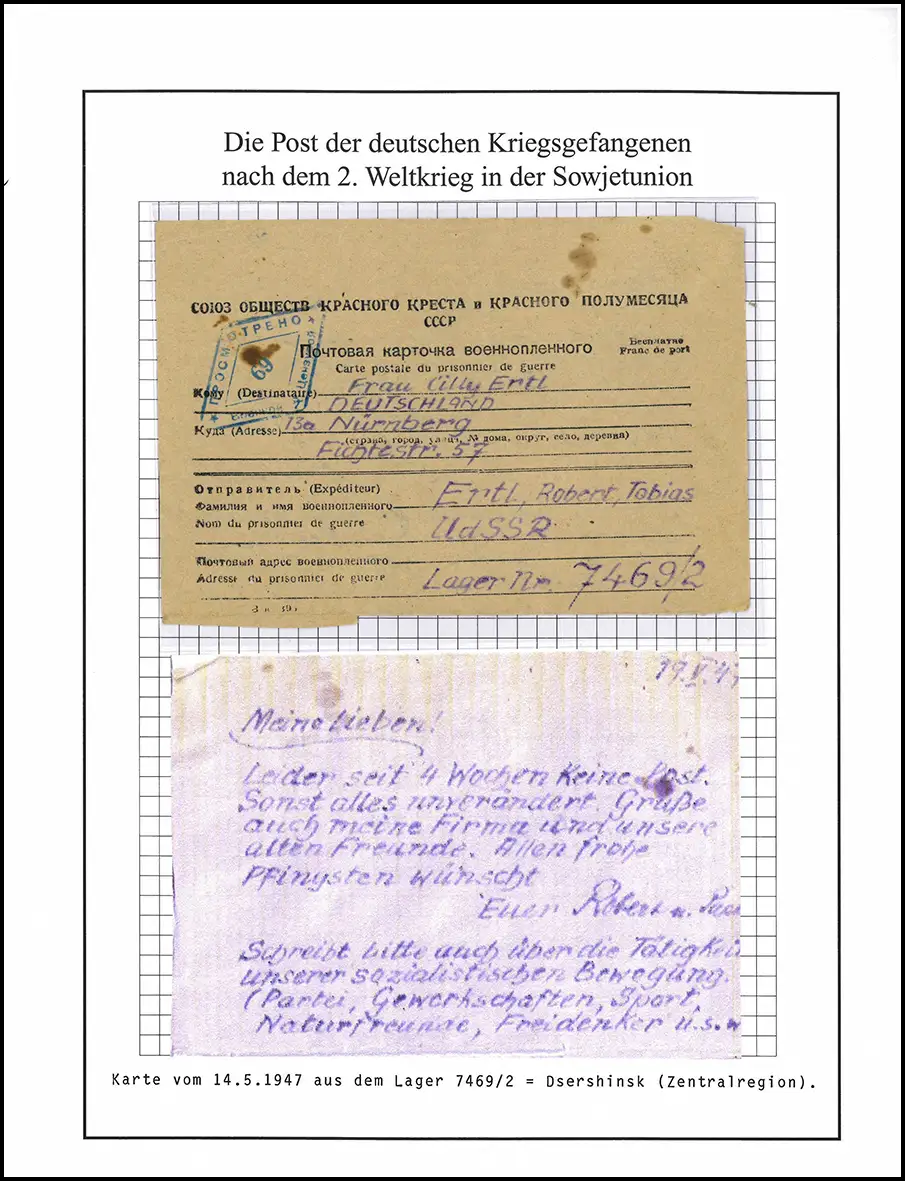 Die Post der deutschen Kriegsgefangenen
nach dem 2. Weltkrieg in der Sowjetunion
СОЮЗ ОБЩЕСТВ КРАСНОГО КРЕСТА и КРАСНОГО ПОЛУМЕСЯЦА
СССР
ПРОСМОТРЕНО
69
Почтовая карточка военнопленного
Бесплатно
Franc de port
Carte postale du prisonnier de guerre
Кому (Destinataire) Frau Cilly Ertl
DEUTSCHLAND
Куда (Adresse) 13a Nürnberg
(страна, город, улица, № дома, округ, село, деревня)
Fichtestr. 57
Отправитель (Expéditeur)
Фамилия и имя военнопленного
Ertl, Robert, Tobias
Nom du prisonnier de guerre
UdSSR
Почтовый адрес военнопленного
Adresse du prisonnier de guerre
Lager Nr. 7469/2
Meine Lieben!
Leider seit 4 Wochen Keine Post.
Sonst alles unverändert. Grüße
auch meine Firma und unsere
alten Freunde. Allen frohe
Pfingsten wünscht
Euer Robert u.
Schreibt bitte auch über die Tätigkei
unserer sozialistischen Bewegung.
(Partei, Gewerkschaften, Sport,
Naturfreunde, Freidenker u.s.w
Karte vom 14.5.1947 aus dem Lager 7469/2 = Dsershinsk (Zentralregion).